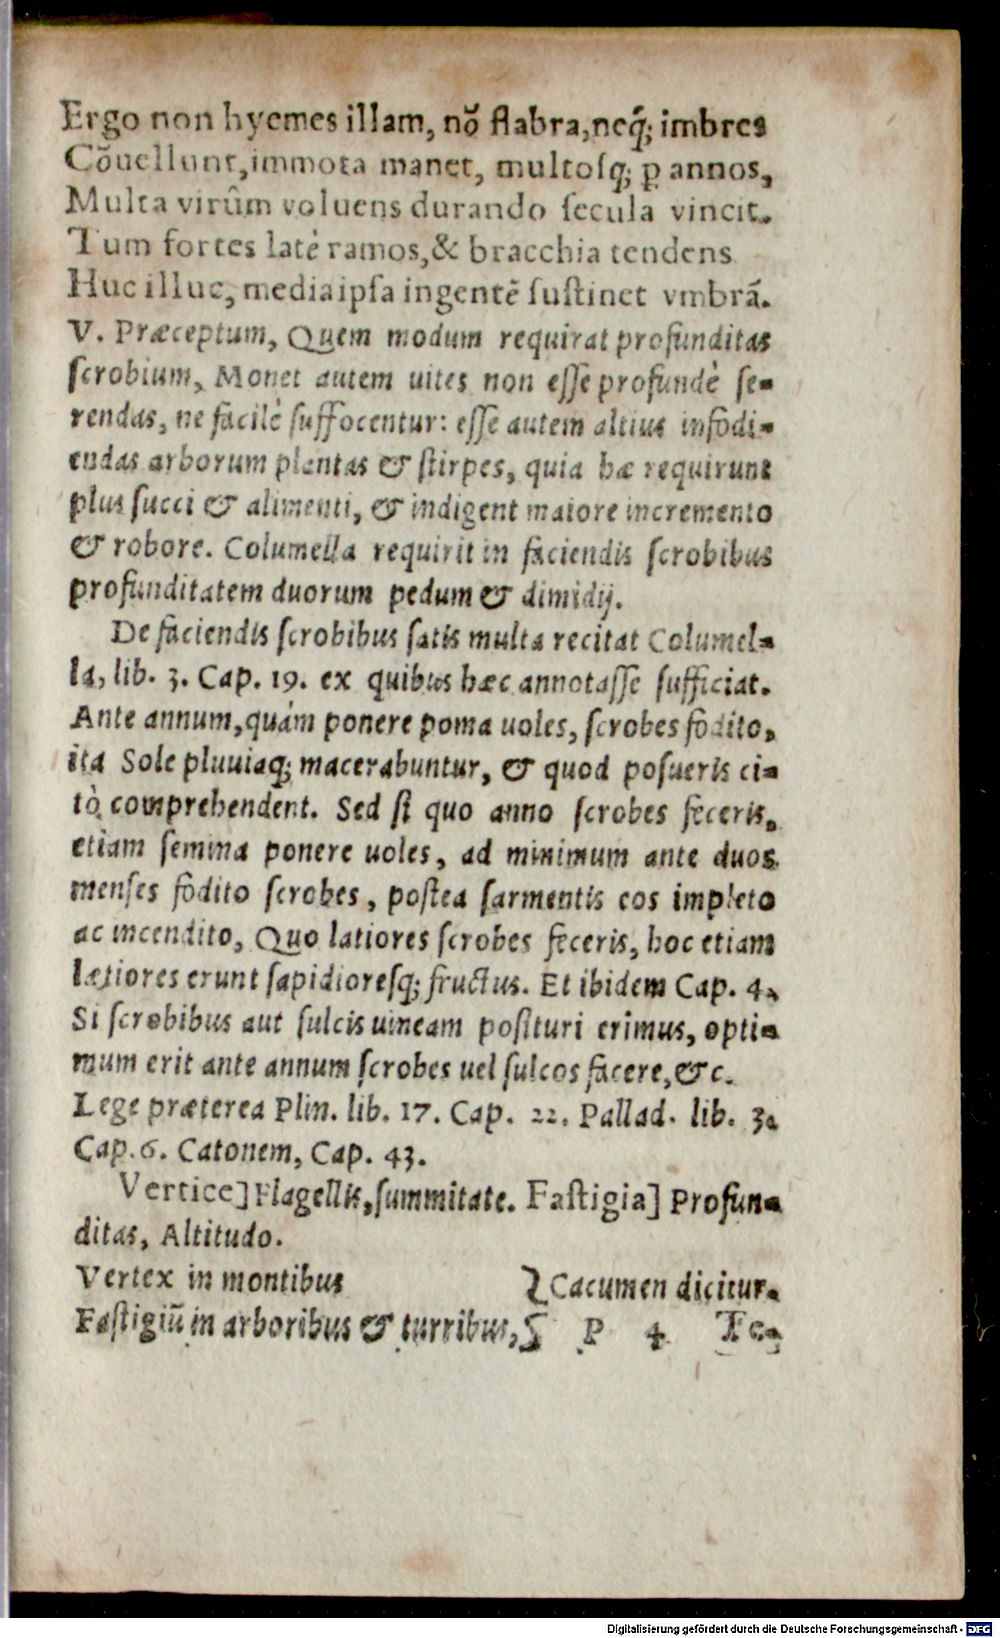 Ergo non hyemes illam, nõ flabra, neq́; imbres
Cõuellunt, immota manet, multoſq; ꝑ annos,
Multa virûm voluens durando ſecula vincit.
Tum fortes latè ramos, & bracchia tendens
Huc illuc, media ipſa ingentẽ ſuſtinet vmbrã.
V. Præceptum, Quem modum requirat profunditas
ſcrobium, Monet autem uites non eſſe profundè ſe-
rendas, ne facilè ſuffocentur: eſſe autem altius infodi-
endas arborum plantas & ſtirpes, quia hæ requirunt
plus ſucci & alimenti, & indigent maiore incremento
& robore. Columella requirit in faciendis ſcrobibus
profunditatem duorum pedum & dimidij.
De faciendis ſcrobibus ſatis multa recitat Columel-
la, lib. 3. Cap. 19. ex quibus hæc annotaſſe ſufficiat.
Ante annum, quàm ponere poma uoles, ſcrobes fodito,
ita Sole pluuiaq; macerabuntur, & quod poſueris ci-
tò comprehendent. Sed ſi quo anno ſcrobes feceris,
etiam ſemina ponere uoles, ad minimum ante duos
menſes fodito ſcrobes, poſtea ſarmentis eos impleto
ac incendito, Quo latiores ſcrobes feceris, hoc etiam
lætiores erunt ſapidioreſq; fructus. Et ibidem Cap. 4.
Si ſcrobibus aut ſulcis uineam poſituri erimus, opti-
mum erit ante annum ſcrobes uel ſulcos facere, &c.
Lege præterea Plin. lib. 17. Cap. 22. Pallad. lib. 3.
Cap. 6. Catonem, Cap. 43.
Vertice] Flagellis, ſummitate. Faſtigia] Profun-
ditas, Altitudo.
Vertex in montibus } Cacumen dicitur.
Faſtigiũ in arboribus & turribus, }
P 4 Te-
Digitalisierung gefördert durch die Deutsche Forschungsgemeinschaft - DFG